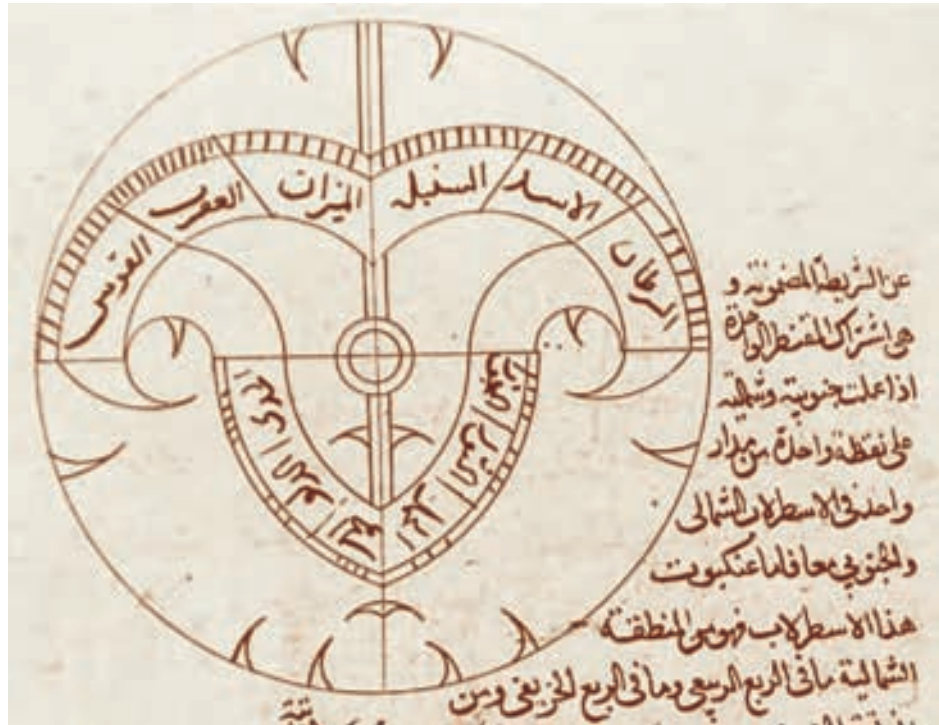 السرطان
الاسد
السنبله
الميزان
العقرب
القوس
الجدى
الدلو
الحوت
الحمل
الثور
الجوزا
عن الشريطة المضمونه و
هى اشتراك المقنطر الواحدة
اذا عملت جنوبية وشمالية
على نقطة واحدة من مدار
واحد فى الاسطرلاب الشمالى
والجنوبي معا فاما عنكبوت
هذا الاسطرلاب فهو من المنطقة
الشمالية ما فى الربع الربيعى وما فى الربع الخريفى ومن